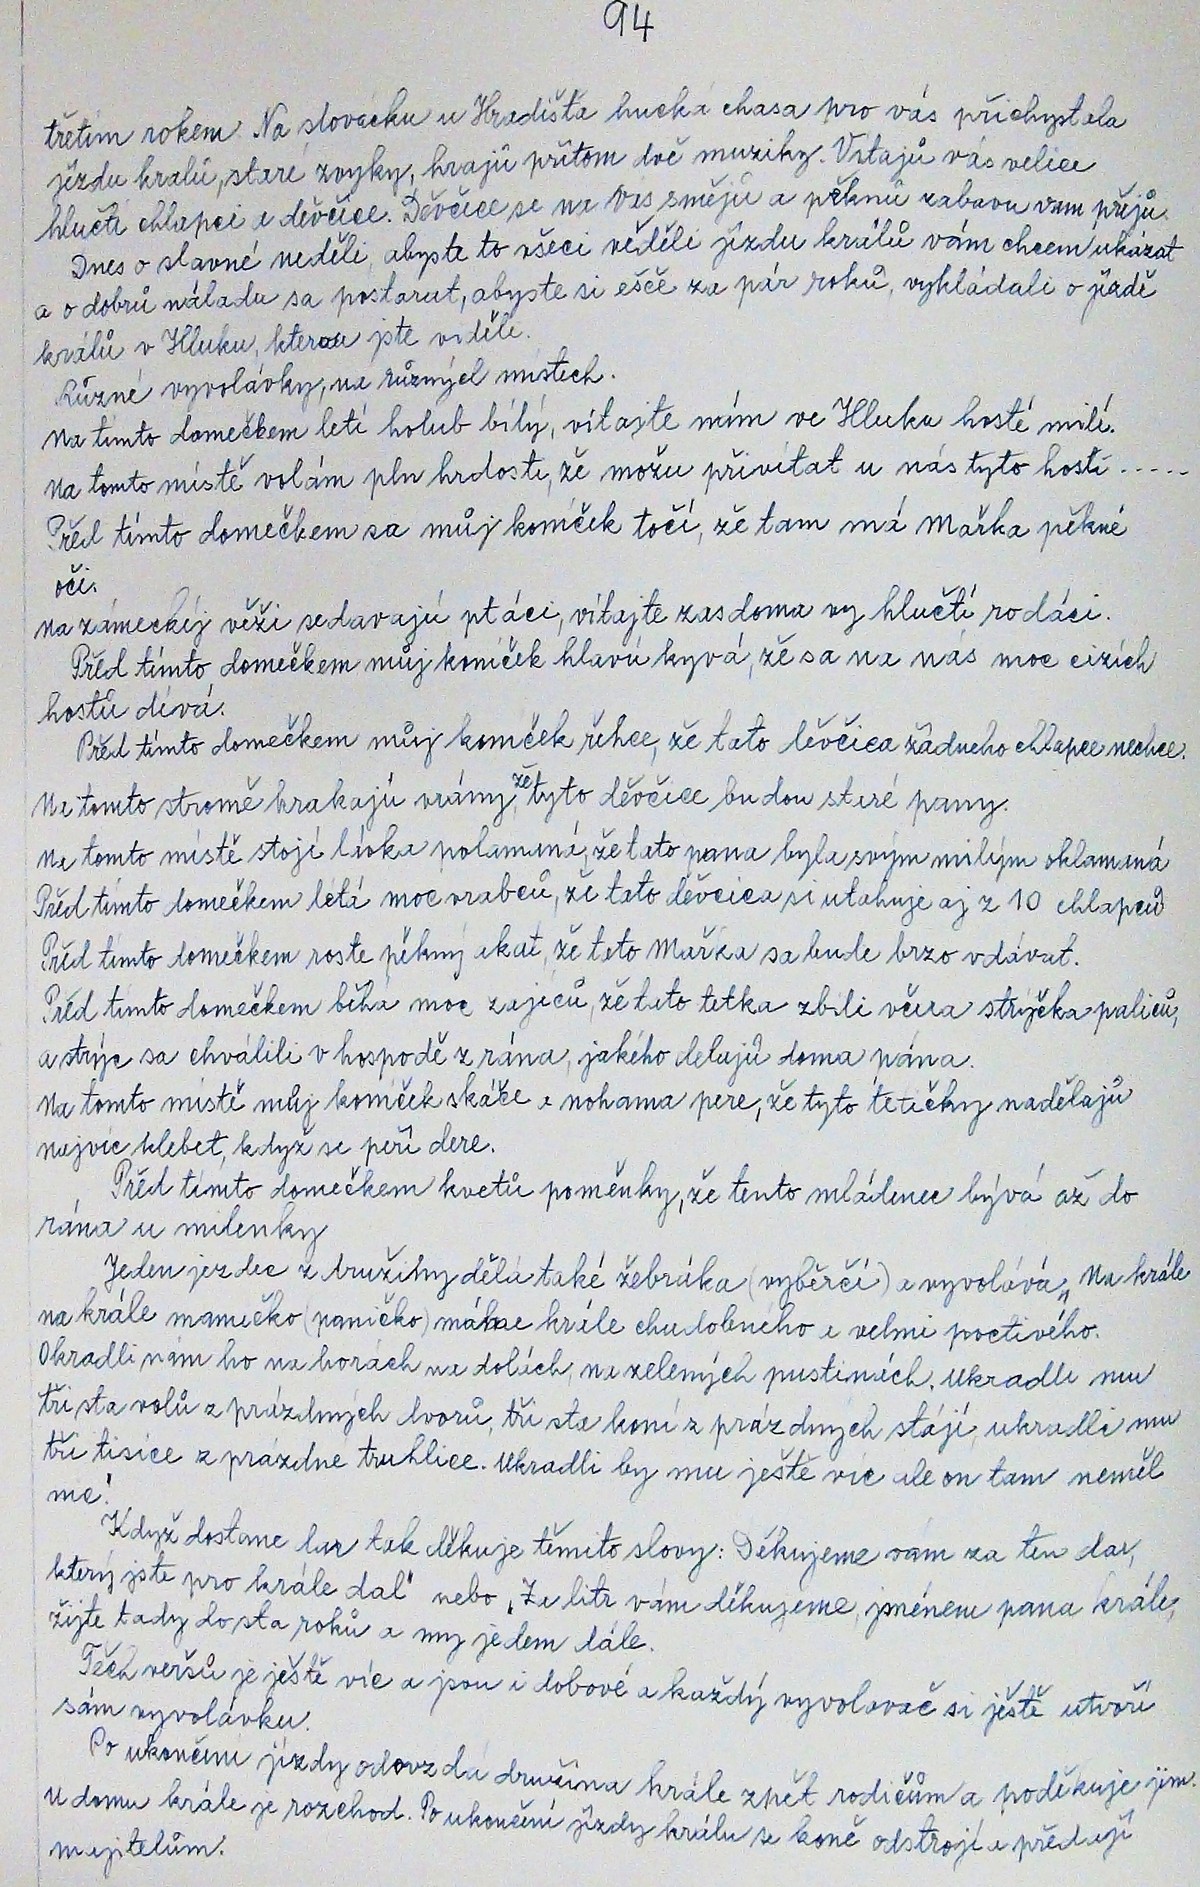 94
třetím rokem. Na slovácku u Hradišťa hucká chasa pro vás přichystala
jízdu králů, staré zvyky, hrajů přitom dvě muziky. Vítajů vás velice
hlučtí chlapci a děvčice. Děvčice se na Vás smějů a pěknů zabavu vam přejů.
Dnes o slavné neděli, abyste to všeci věděli jízdu králů vám chcem ukázat
a o dobrů náladu sa postarat, abyste si ešče za pár roků, vykládali o jízdě
králů v Hluku, kterou jste viděli.
Různé vyvolávky, na různých místech.
Na tímto domečkem letí holub bílý, vítajte nám ve Hluku hosté milí.
Na tomto místě volám pln hrdosti, že možu přivítat u nás tyto hosti .....
Před tímto domečkem sa můj koníček točí, že tam má Mařka pěkné
oči.
na zámeckéj věži sedavajú ptáci, vítajte zas doma vy hlučtí rodáci.
Před tímto domečkem můj koníček hlavú kyvá, že sa na nás moc cizích
hostů dívá.
Před tímto domečkem můj koníček řehce, že tato děvčica žádneho chlapce nechce.
Na tomto stromě krakajú vrány, že tyto děvčice budou staré pany.
Na tomto místě stojí lávka polamaná, že tato pana byla svým milým oklamaná
Před tímto domečkem létá moc vrabců, že tato děvčica si utahuje aj z 10 chlapců
Před tímto domečkem roste pěkný akát, že tato Mařka sa bude brzo vdávat.
Před tímto domečkem běhá moc zajíců, že tato tetka zbili včera strýčka paliců,
a strýc sa chválili v hospodě z rána, jakého delajů doma pána.
Na tomto místě můj koníček skáče a nohama pere, že tyto tetičky nadělajů
nejvíc klebet, když se peří dere.
Před tímto domečkem kvetů poměnky, že tento mládenec bývá až do
rána u milenky
Jeden jezdec z družiny dělá také žebráka (vyběrčí) a vyvolává „Na krále
na krále mamičko (paničko) máme krále chudobného a velmi poctivého.
Okradli nám ho na horách na dolách, na zelených pustinách. Ukradli mu
tři sta volů z prázdných dvorů, tři sta koní z prázdných stájí, ukradli mu
tři tisíce z prázdne truhlice. Ukradli by mu ještě víc ale on tam neměl
nic."
Když dostane dar tak děkuje těmito slovy: Děkujeme vám za ten dar,
který jste pro krále dal" nebo „Za litr vám děkujeme, jménem pana krále,
žijte tady do sta roků a my jedem dále.
Těch veršů je ještě víc a jsou i dobové a každý vyvolavač si ještě utvoří
sám vyvolávku.
Po ukončení jízdy odovzdá družina krále zpět rodičům a poděkuje jim.
U domu krále je rozchod. Po ukončení jízdy králu se koně odstrojí a předají
majitelům.